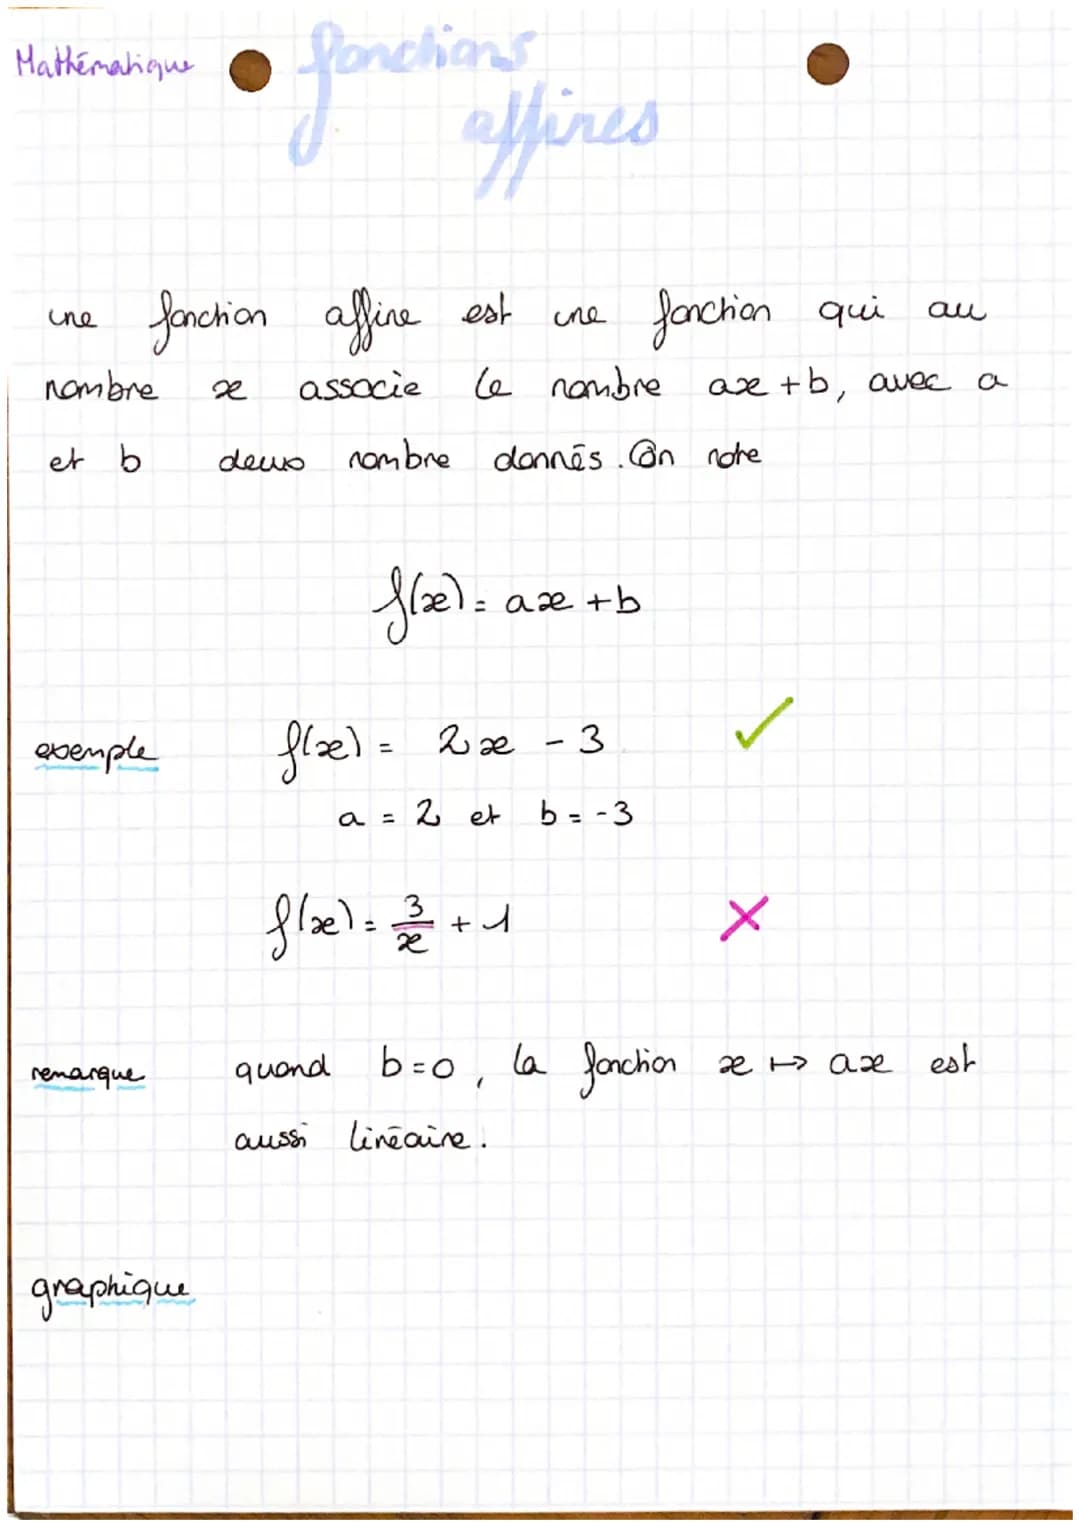 Mathématique
fonctions
affines
une fonction affine est une fonction qui au
nombre x associe le nombre ax + b, avec a
et b deux nombre donnés. On note
f(x) = ax + b
exemple f(x) = 2x - 3 ✓
a = 2 et b = -3
f(x) = 3/x + 1 ✗
remarque quand b = 0, la fonction x ↦ ax est
aussi linéaire.
graphique